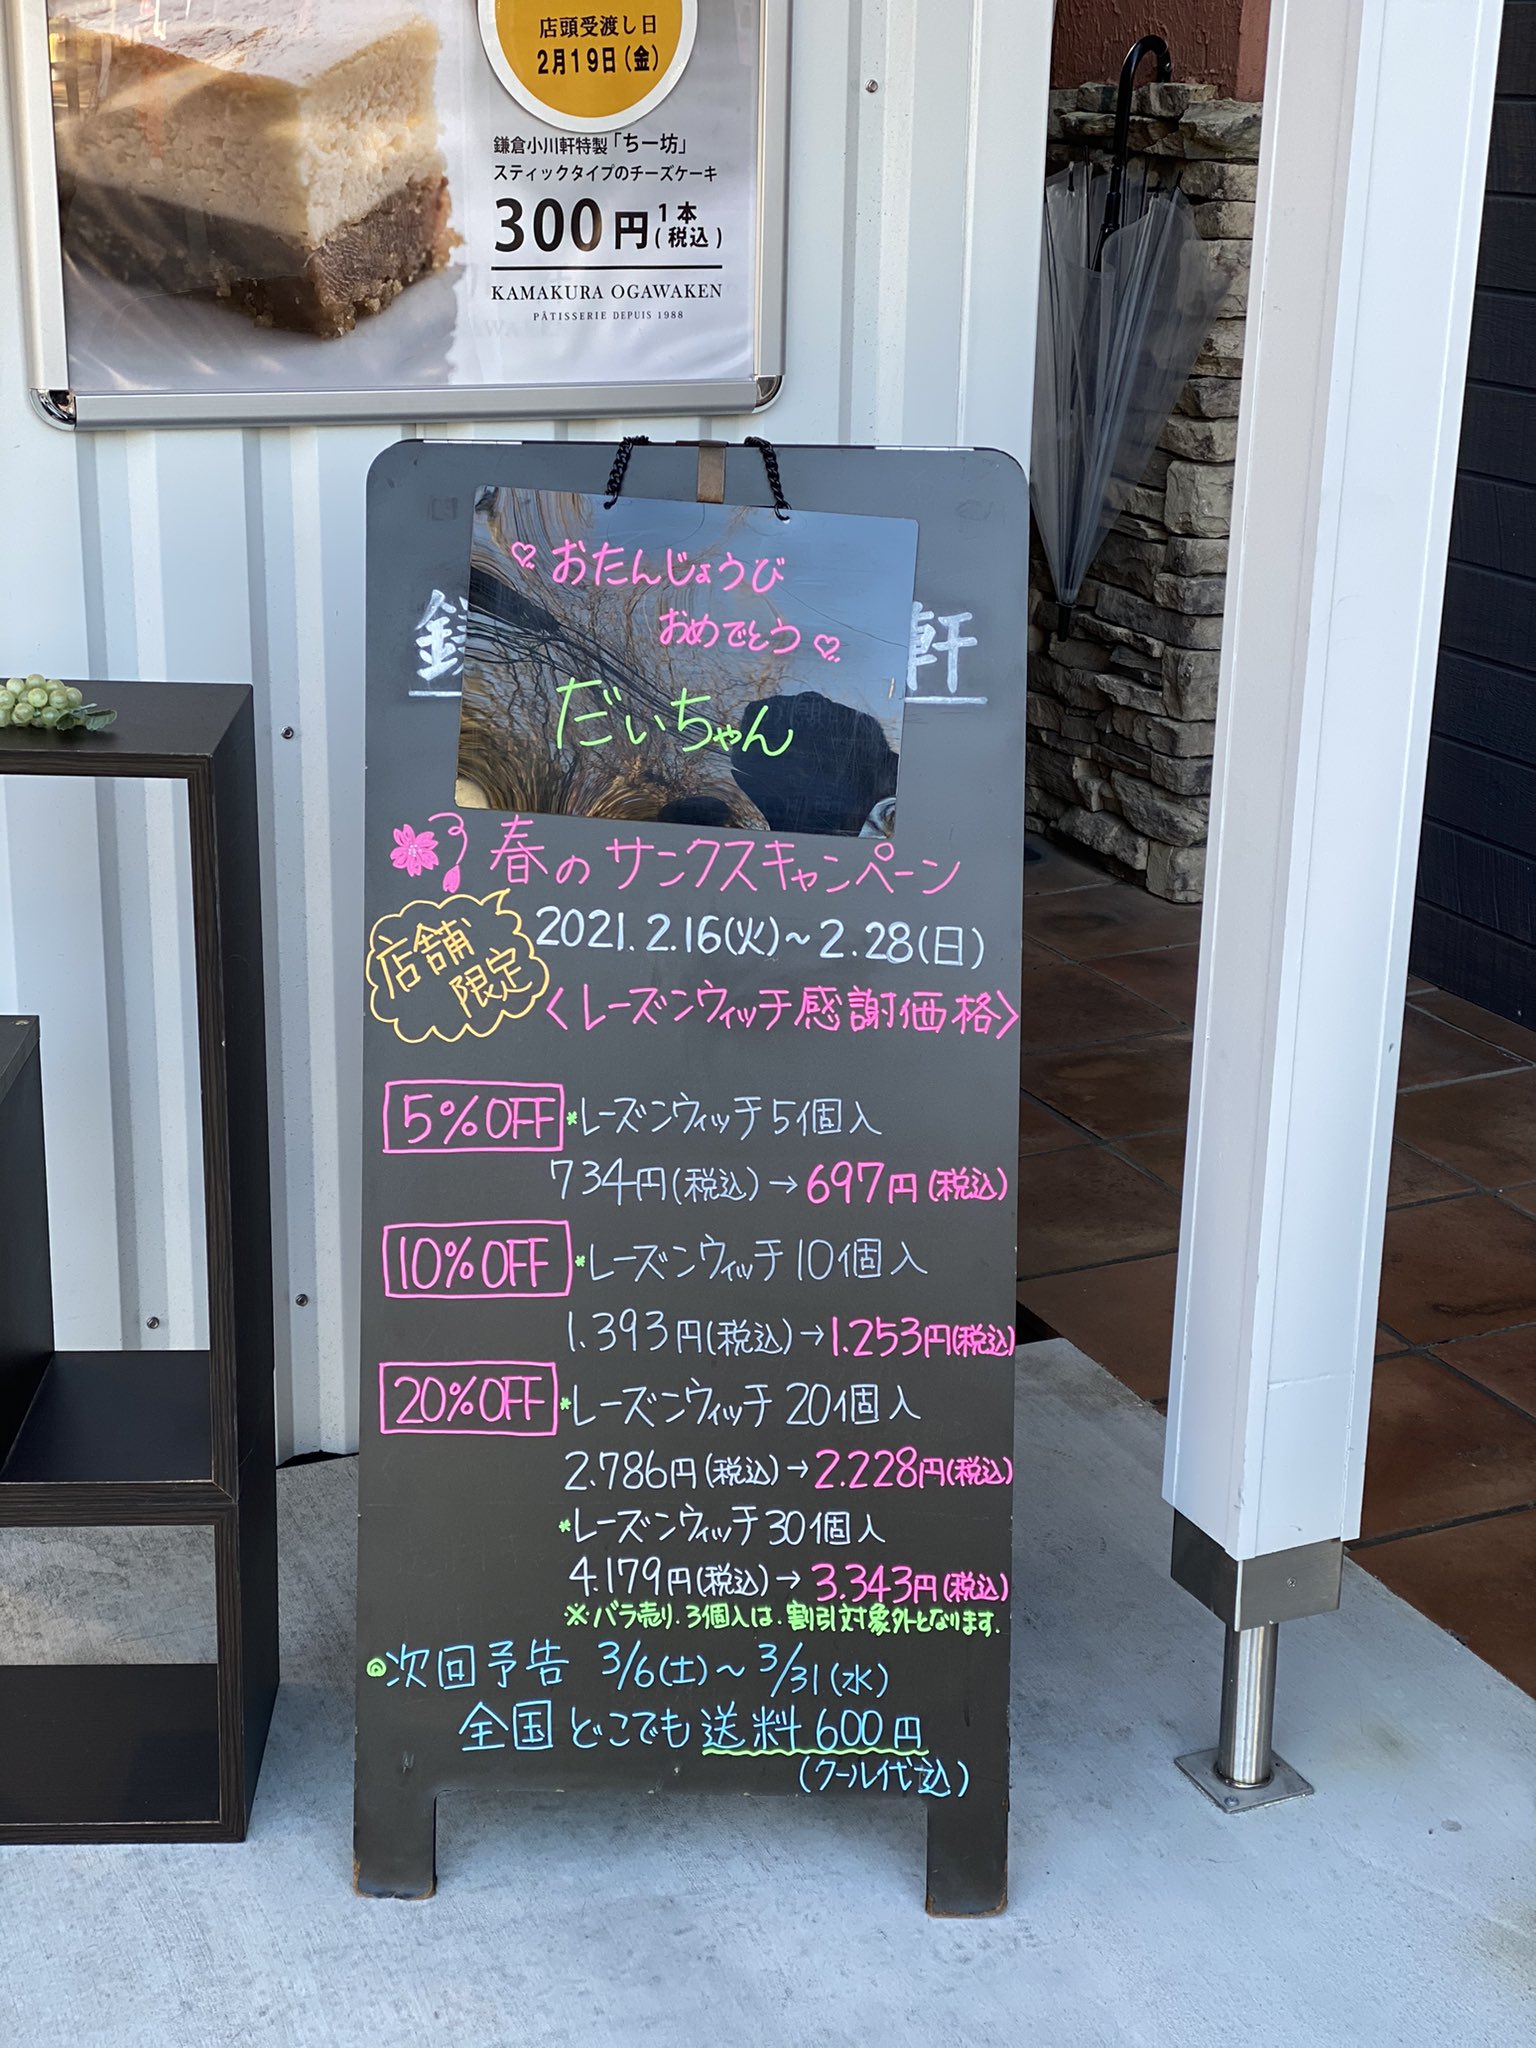 店頭受渡し日
2月19日(金)
鎌倉小川軒特製「ちー坊」
スティックタイプのチーズケーキ
300円 1本(税込)
KAMAKURA OGAWAKEN
PÂTISSERIE DEPUIS 1988
おたんじょうび
おめでとう
だいちゃん
軒
春のサンクスキャンペーン
店舗限定
2021.2.16(火)~2.28(日)
<レーズンウィッチ感謝価格>
5%OFF *レーズンウィッチ5個入
734円(税込)→697円(税込)
10%OFF *レーズンウィッチ10個入
1.393円(税込)→1.253円(税込)
20%OFF *レーズンウィッチ20個入
2.786円(税込)→2.228円(税込)
*レーズンウィッチ30個入
4.179円(税込)→3.343円(税込)
※バラ売り.3個入は.割引対象外となります.
◎次回予告 3/6(土)~3/31(水)
全国どこでも送料600円
(クール代込)